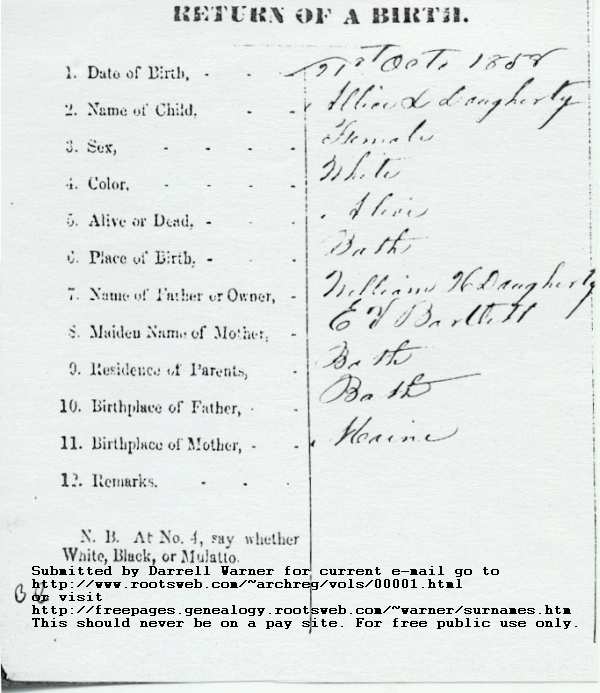 RETURN OF A BIRTH.
1. Date of Birth, - - - 21st Oct. 1858
2. Name of Child, - - Allice L Daugherty
3. Sex, - - - - Female
4. Color, - - - - White
5. Alive or Dead, - - - Alive
6. Place of Birth, - - - Bath
7. Name of Father or Owner, - William H Daugherty
8. Maiden Name of Mother, - E Bartlett
9. Residence of Parents, - Bath
10. Birthplace of Father, - - Bath
11. Birthplace of Mother, - - Maine
12. Remarks. - - -
N. B. At No. 4, say whether
White, Black, or Mulatto.
Submitted by Darrell Warner for current e-mail go to
http://www.rootsweb.com/~archreg/vols/00001.html
or visit
http://freepages.genealogy.rootsweb.com/~warner/surnames.htm
This should never be on a pay site. For free public use only.